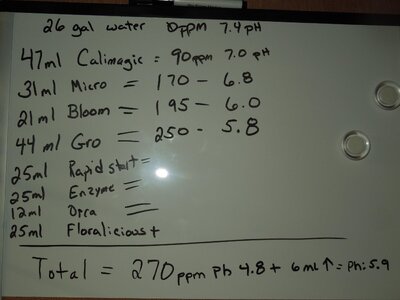 26 gal water 0ppm 7.4 pH
47ml Calimagic = 90ppm 7.0 pH
31ml Micro = 170 - 6.8
21ml Bloom = 195 - 6.0
44 ml Gro = 250 - 5.8
25ml Rapid start =
25ml Enzyme =
12ml Orca =
25ml Floralicious +
Total = 270ppm ph 4.8 + 6ml ↑ = ph: 5.9